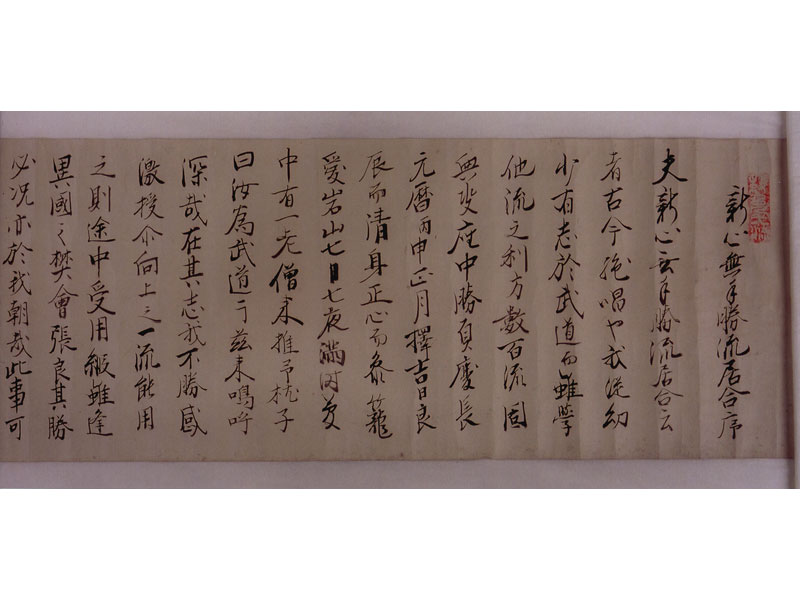 新心無手勝流居合序
夫新心無手勝流居合云
者古今絶唱也我従幼
少有志於武道而雖学
他流之利方数百流固
與叟座中勝負慶長
元暦丙申正月擇吉日良
辰而清身正心而参籠
愛岩山七日七夜満時夢
中有一老僧来推予枕子
曰汝為武道于茲来鳴呼
深哉在其志我不勝感
激授尒向上之一流能用
之則途中受用縦雖逢
異國之樊會張良其勝
必況亦於我朝哉此事可